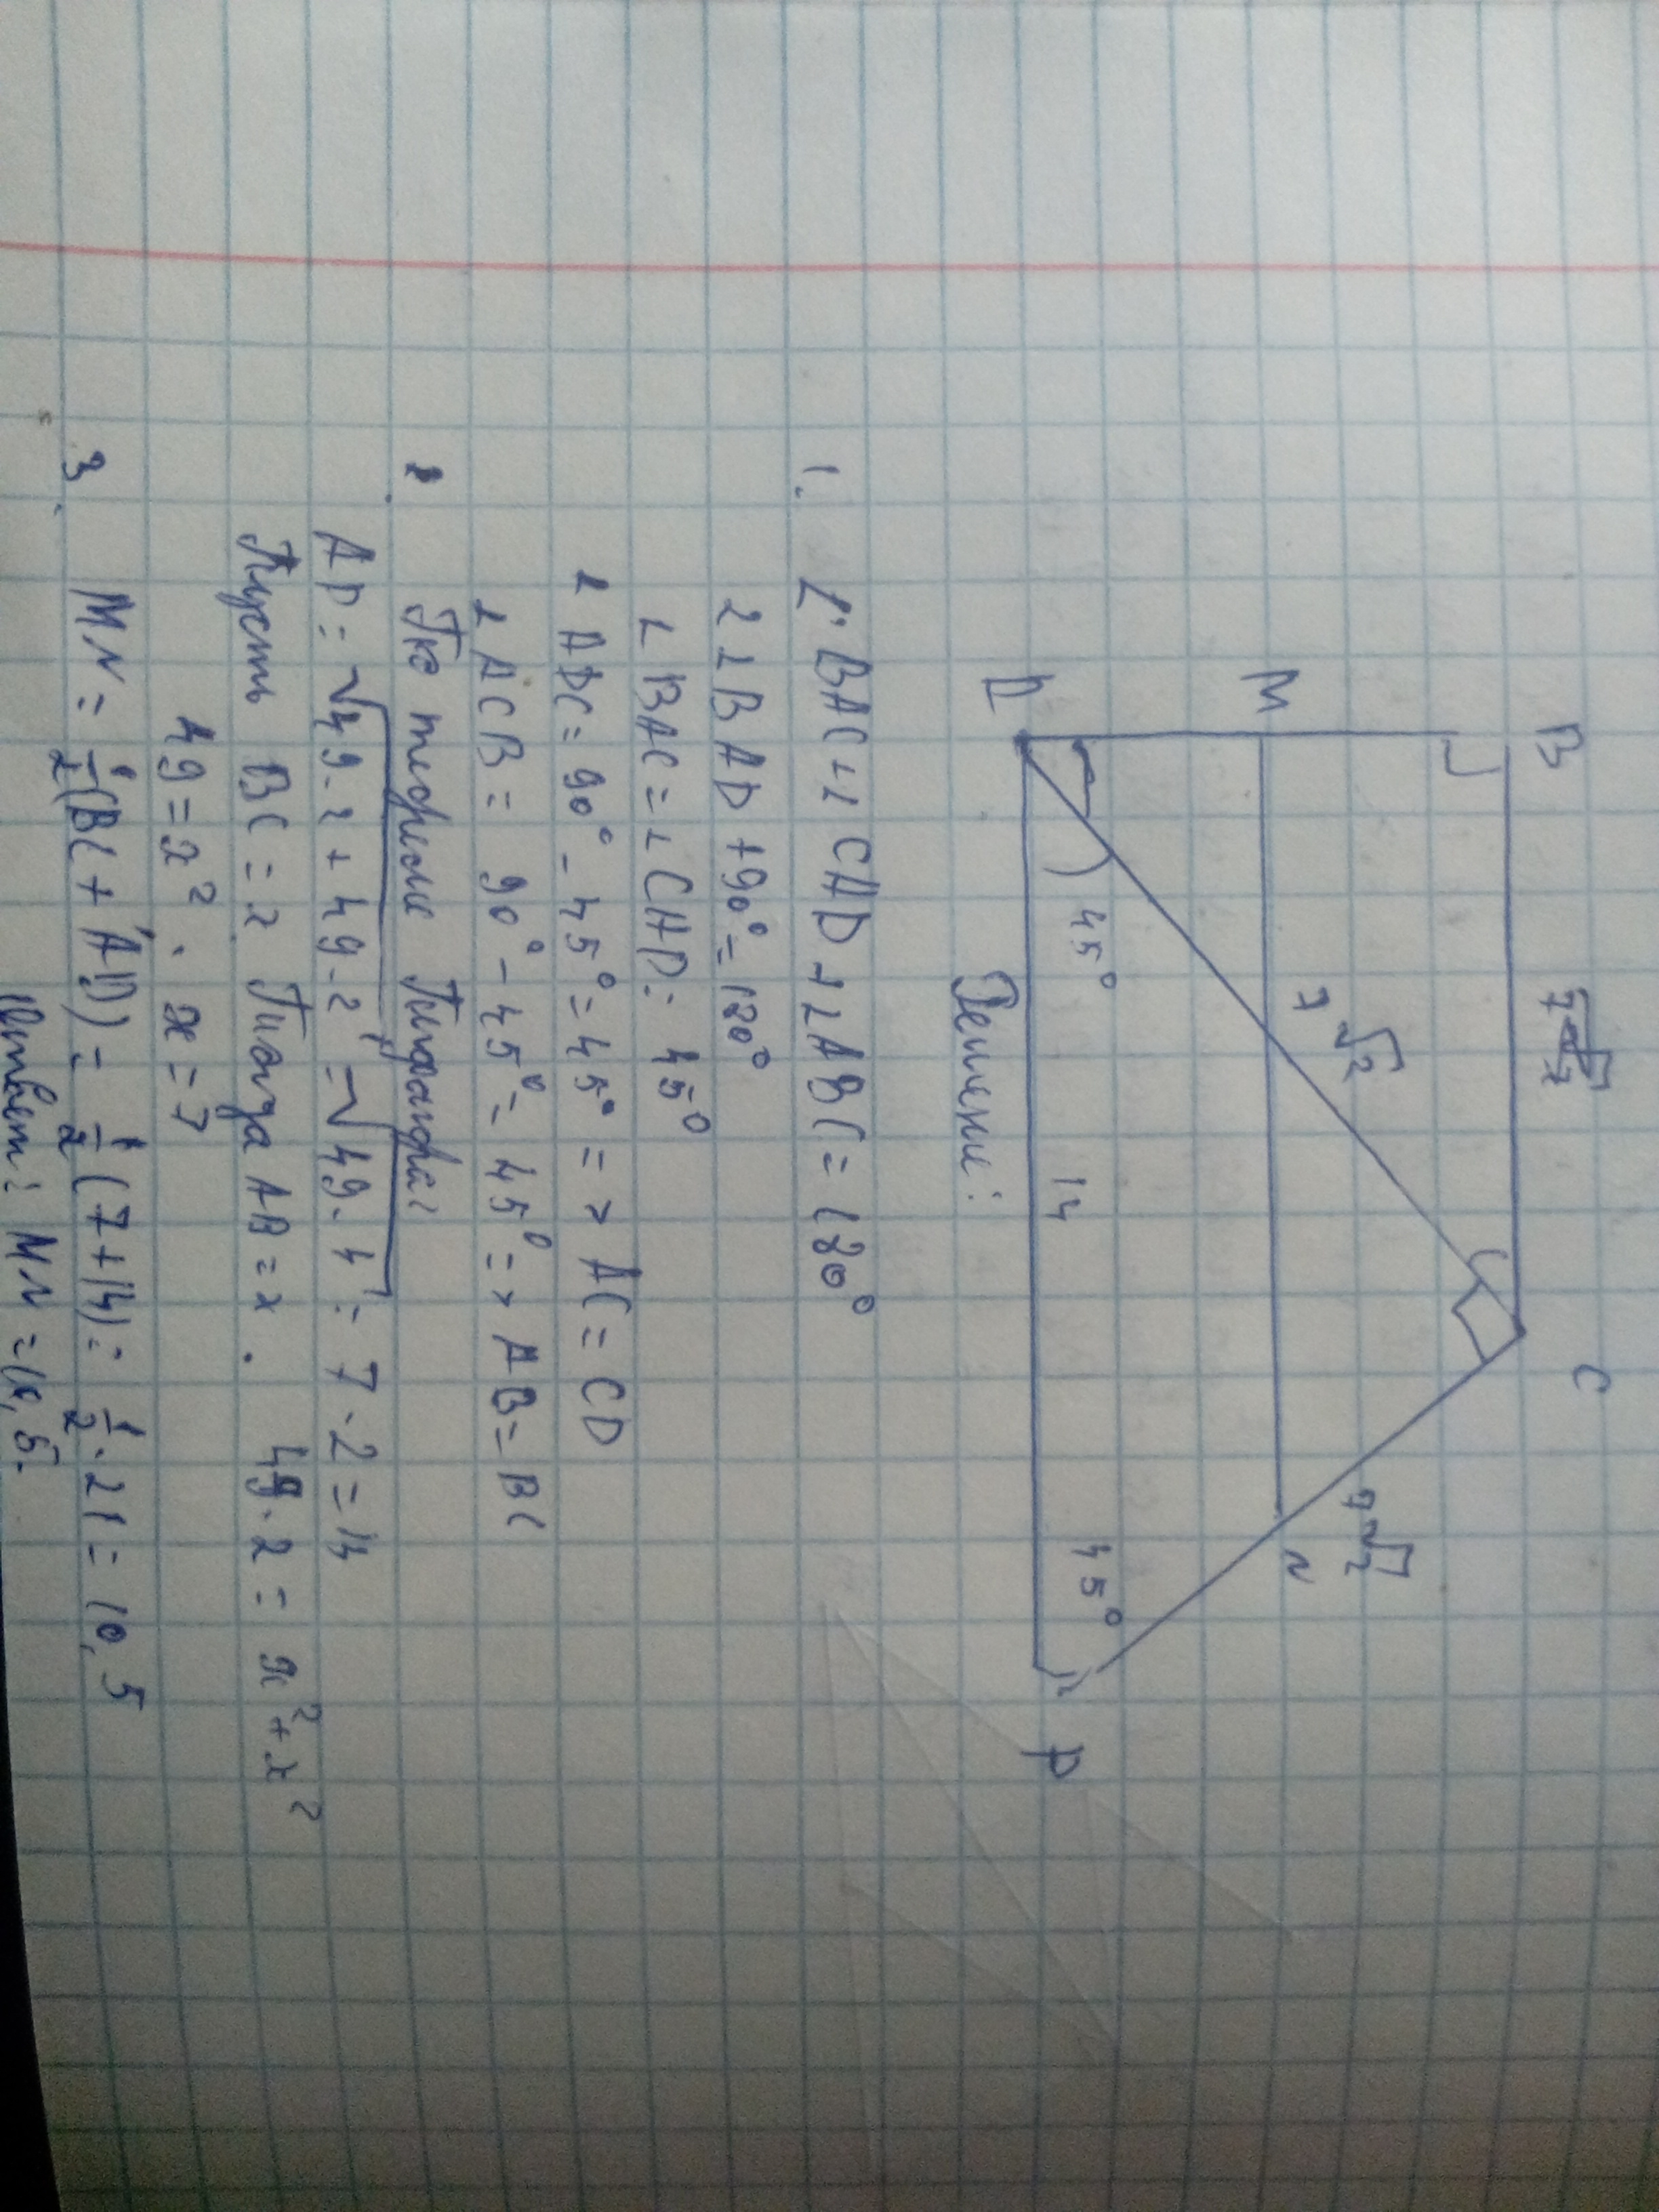 B 7√2 C
M 7√2 7√2 N
45° 14 45°
A D
Решение:
1. ∠BAC + ∠CAD + ∠ABC = 180°
2∠BAD + 90° = 180°
∠BAC = ∠CAD = 45°
∠ADC = 90° - 45° = 45° => AC = CD
∠ACB = 90° - 45° = 45° => AB = BC
По теореме Пифагора:
AD = √49·2 + 49·2 = √49·4 = 7·2 = 14
Пусть BC = x Тогда AB = x. 49·2 = x² + x²
49 = x². x = 7
3. MN = 1/2(BC + AD) = 1/2(7+14) = 1/2·21 = 10,5
Ответ: MN = 10,5.